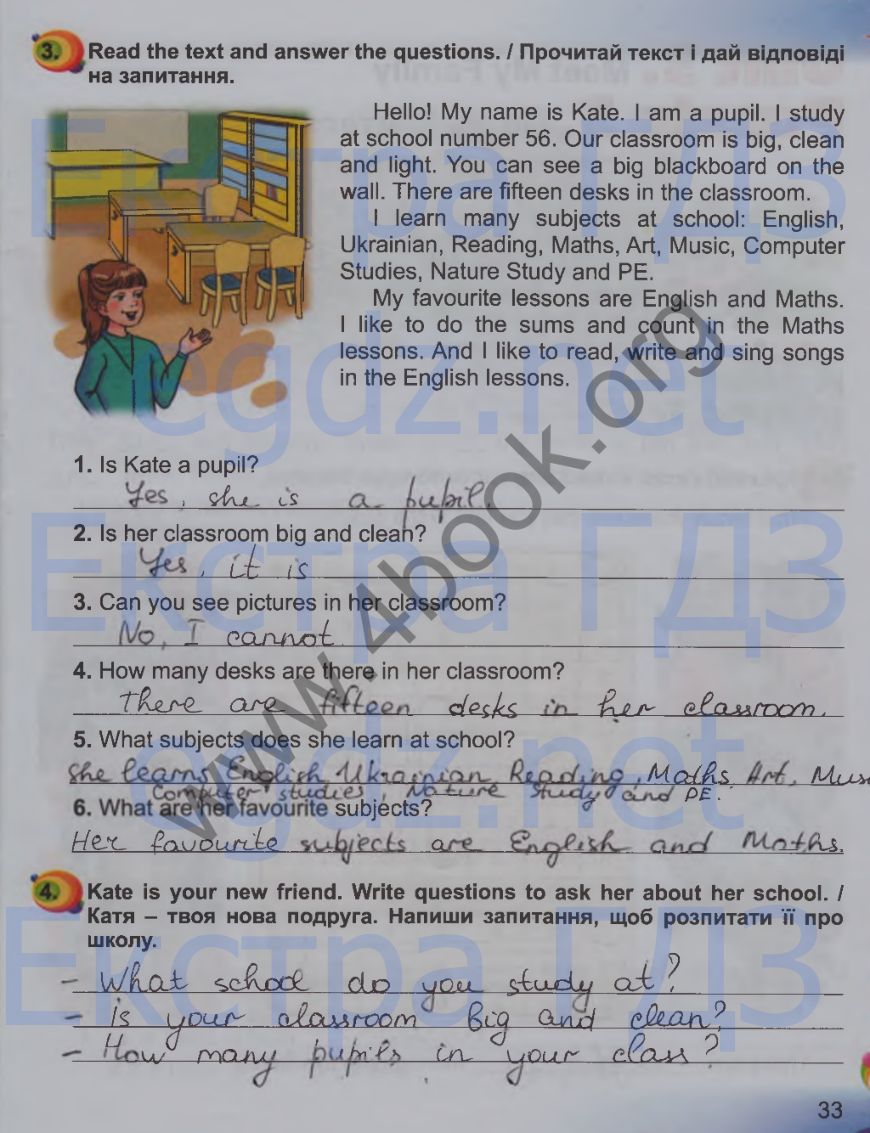 3. Read the text and answer the questions. / Прочитай текст і дай відповіді
на запитання.
Hello! My name is Kate. I am a pupil. I study
at school number 56. Our classroom is big, clean
and light. You can see a big blackboard on the
wall. There are fifteen desks in the classroom.
I learn many subjects at school: English,
Ukrainian, Reading, Maths, Art, Music, Computer
Studies, Nature Study and PE.
My favourite lessons are English and Maths.
I like to do the sums and count in the Maths
lessons. And I like to read, write and sing songs
in the English lessons.
1. Is Kate a pupil?
Yes, she is a pupil.
2. Is her classroom big and clean?
Yes, it is
3. Can you see pictures in her classroom?
No, I cannot
4. How many desks are there in her classroom?
There are fifteen desks in her classroom.
5. What subjects does she learn at school?
She learns English, Ukrainian, Reading, Maths Art, Mus
Computer studies, Nature study and PE.
6. What are her favourite subjects?
Her favourite subjects are English and Maths.
4. Kate is your new friend. Write questions to ask her about her school. /
Катя – твоя нова подруга. Напиши запитання, щоб розпитати її про
школу.
– What school do you study at?
– is your classroom big and clean?
– How many pupils in your class?
33
Екстра ГДЗ
egdz.net
Екстра ГДЗ
egdz.net
Екстра ГДЗ
www.4book.org